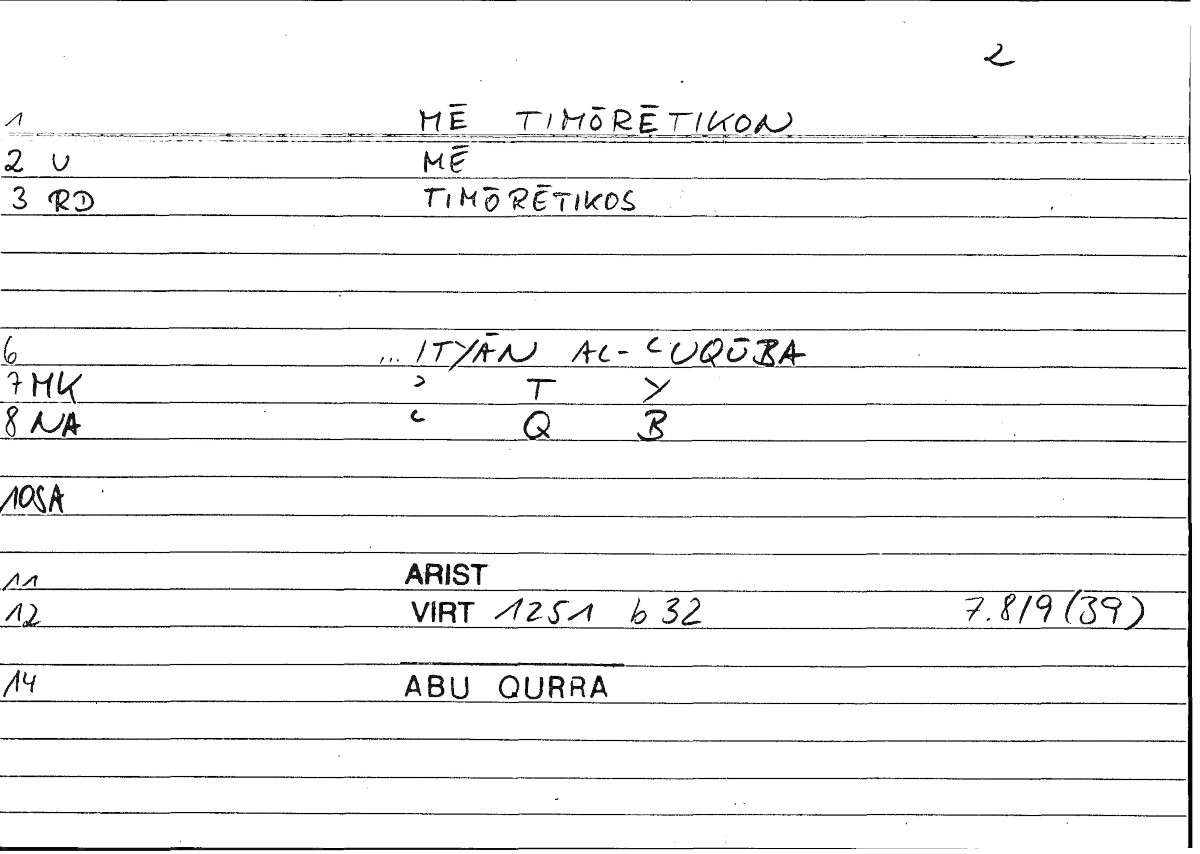 2
1 MĒ TIMŌRĒTIKON
2 U MĒ
3 RD TIMŌRĒTIKOS
6 ... ITYĀN AL-ʿUQŪBA
7 MK ʾ T Y
8 NA ʿ Q B
10 SA
11 ARIST
12 VIRT 1251 b 32 7.8/9 (39)
14 ABU QURRA